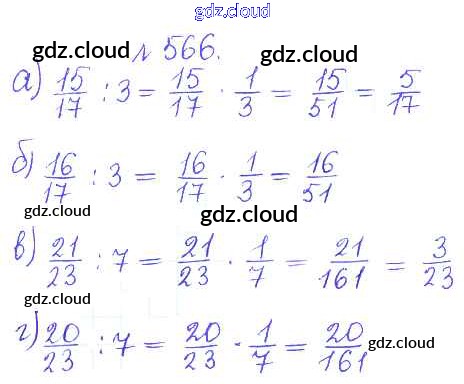 gdz.cloud
gdz.cloud № 566. gdz.cloud
а) 15/17 : 3 = 15/17 · 1/3 = 15/51 = 5/17
gdz.cloud gdz.cloud
б) 16/17 : 3 = 16/17 · 1/3 = 16/51
gdz.cloud gdz.cloud gdz.cloud
в) 21/23 : 7 = 21/23 · 1/7 = 21/161 = 3/23
gdz.cloud
г) 20/23 : 7 = 20/23 · 1/7 = 20/161 gdz.cloud
gdz.cloud